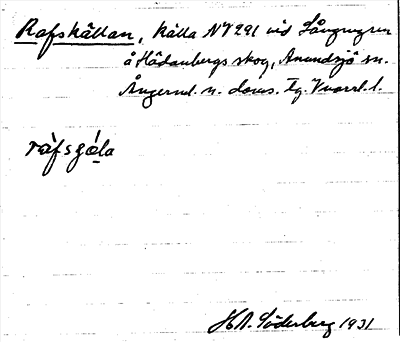 Rafskällan, källa NV 291 vid Långmyren
å Hädanbergs skog, Anundsjö sn.
Ångerml. n. doms. tg. Västerd. l.
ràfsgä́la
H.A. Söderberg 1931